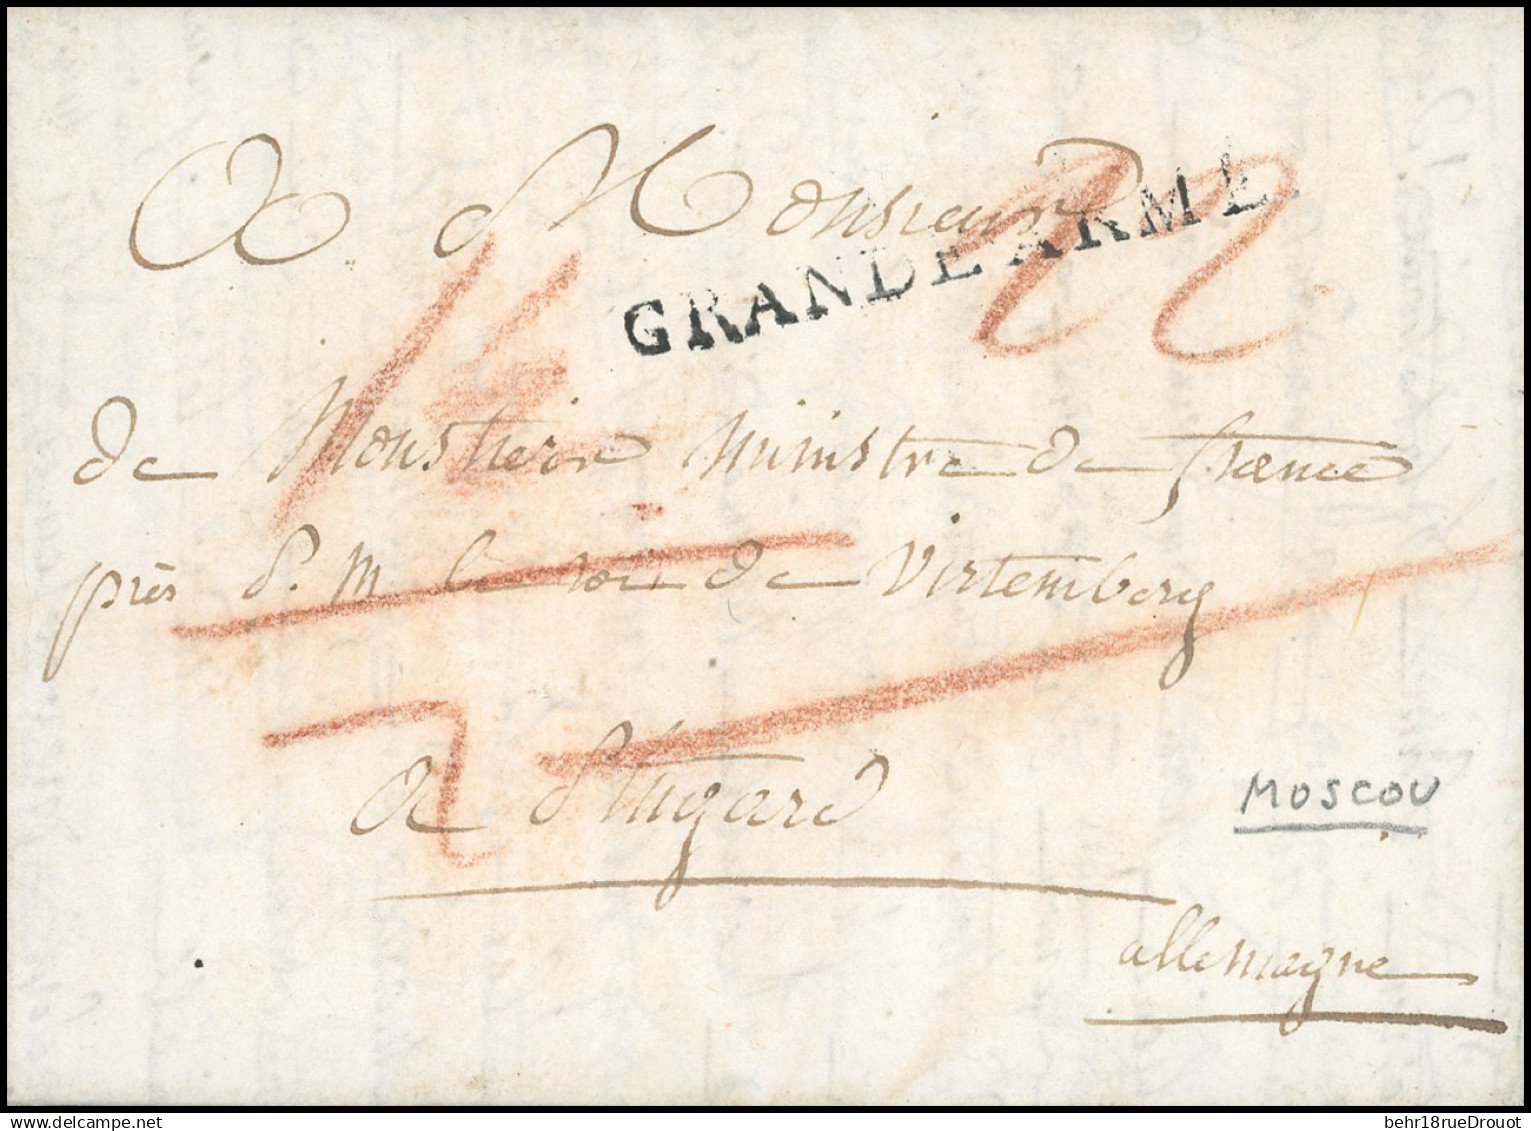 A Monsieur
GRANDE ARMÉE
22
de Moustier ministre de france
près S. M le roi de Virtemberg
a Stutgard
MOSCOU
allemagne
behr18rueDrouot